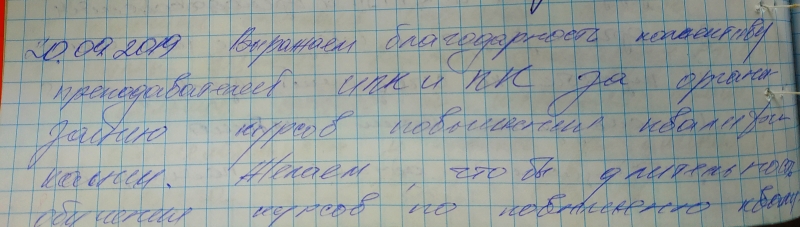 20.09.2019 Выражаем благодарность коллективу
преподавателей ИПК и ПК за органи
зацию курсов повышения квалифи
кации. Желаем, что бы длительность
обучения курсов по повышению квали